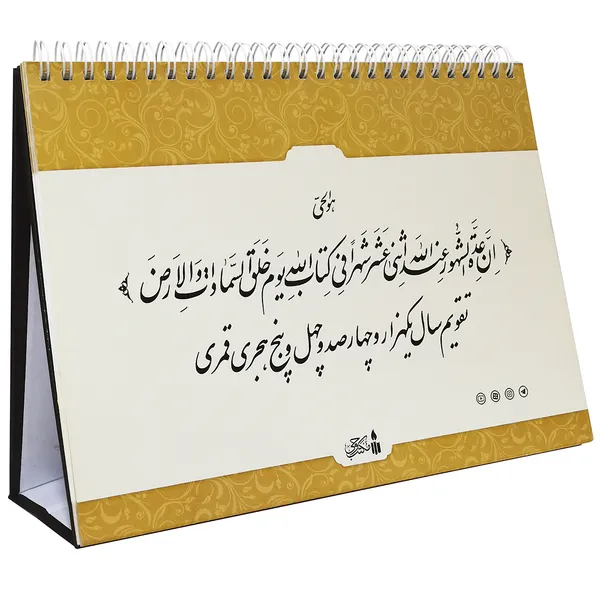 هوالحیّ
﴿ اِنَّ عِدَّةَ الشُّهُورِ عِندَ اللهِ اثْنی عَشَرَ شَهْراً فِی کِتَابِ اللهِ یَومَ خَلَقَ السَّمَاوَاتِ وَالاَرضَ ﴾
تقویم سال یکهزار و چهارصد و چهل و پنج هجری قمری